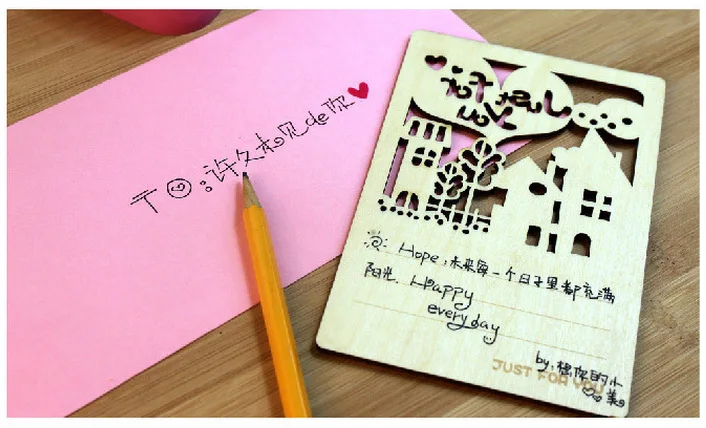 TO:许久未见de你
Just For You
Hope,未来每一个日子里都充满
阳光.Happy
everyday
by.想你的小美
JUST FOR YOU